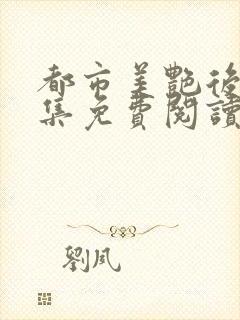 都市美艷後
集免費閱讀
劉風